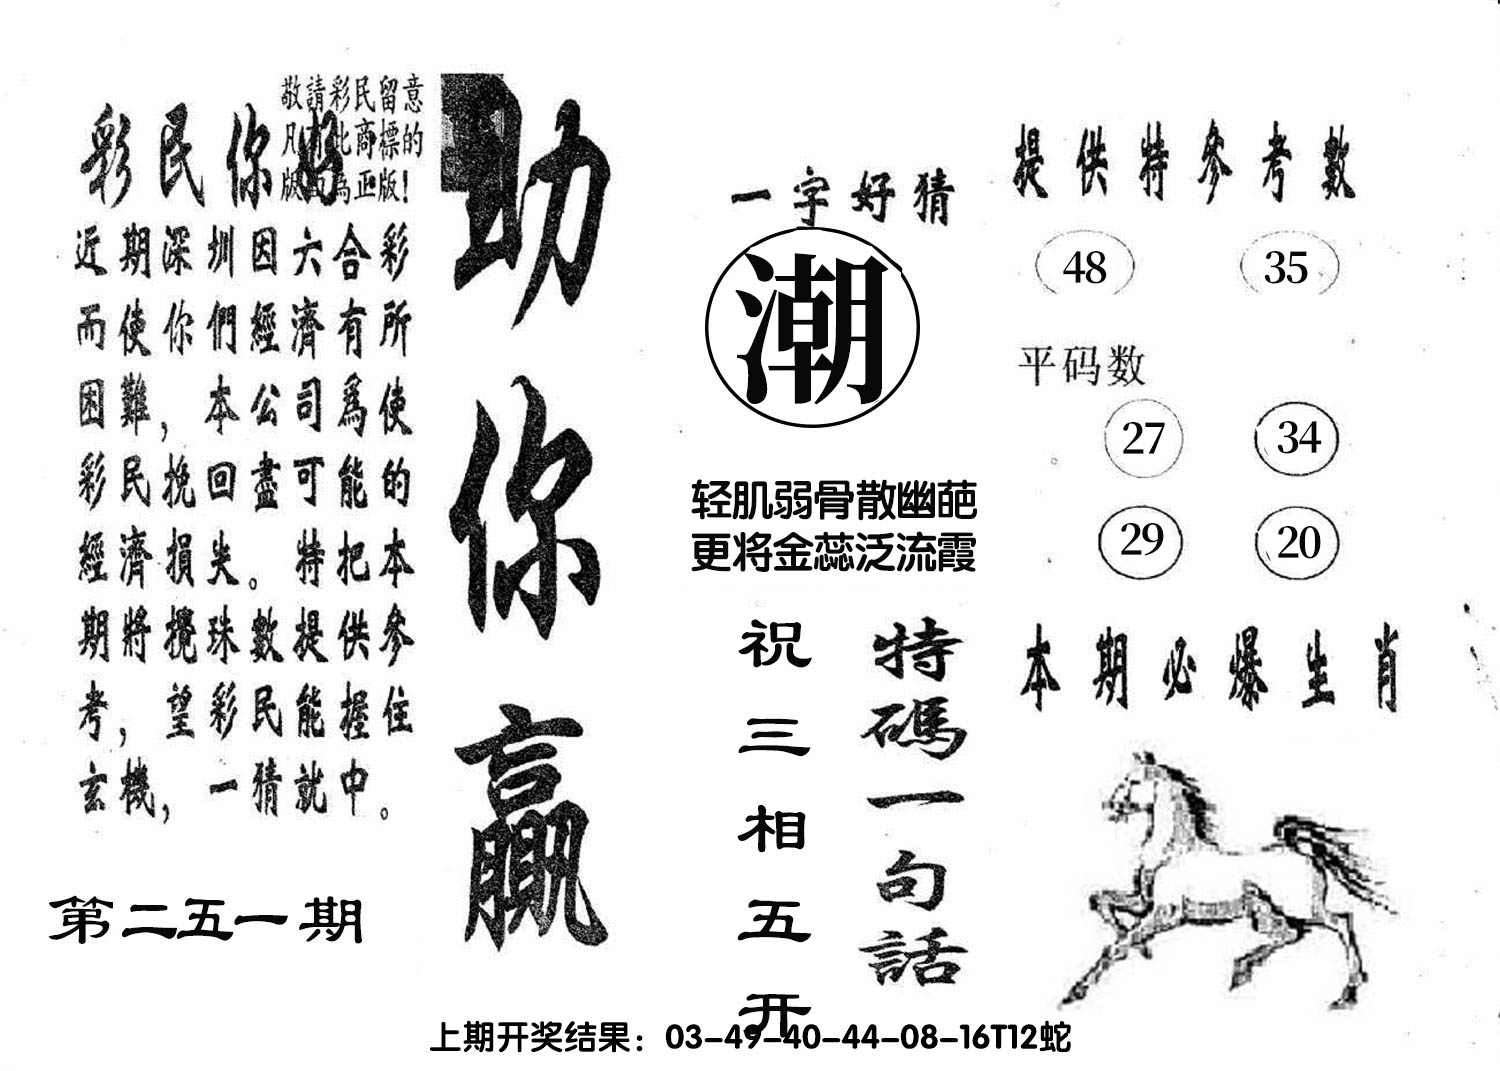 敬請彩民留意
凡有此商標的
版面為正版！
彩民你好
近期深圳因六合彩
而使你們經濟有所
困難，本公司爲使
彩民挽回盡可能的
經濟損失。特把本
期將攪珠數提供參
考，望彩民能握住
玄機，一猜就中。
第二五一期
助你贏
一字好猜
潮
轻肌弱骨散幽葩
更将金蕊泛流霞
特碼一句話
祝三相五开
提供特參考數
48 35
平码数
27 34
29 20
本期必爆生肖
上期开奖结果：03-49-40-44-08-16T12蛇